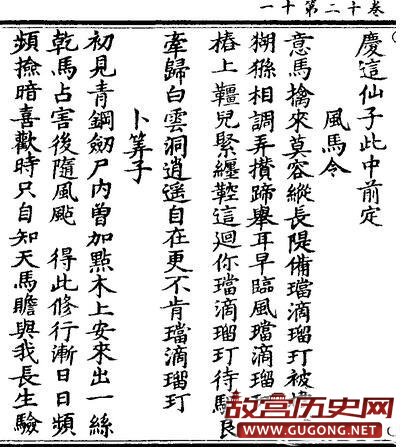 卷十二第十一
慶這仙子此中前定
風馬令
意馬擒來莫容縱長隄備璫滴瑠玎被
猢猻相調弄攢蹄舉耳早臨風璫滴瑠
樁上韁兒緊纏鞚這迴你璫滴瑠玎待
牽歸白雲洞逍遥自在更不肯璫滴瑠玎
卜筭子
初見青鋼劒尸內曽加點木上安來出一絲
乾馬占害後隨風颩　得此修行漸日日頻
頻撿暗喜歡時只自知天馬瞻與我長生驗
故宫历史网
WWW.GUGONG.NET